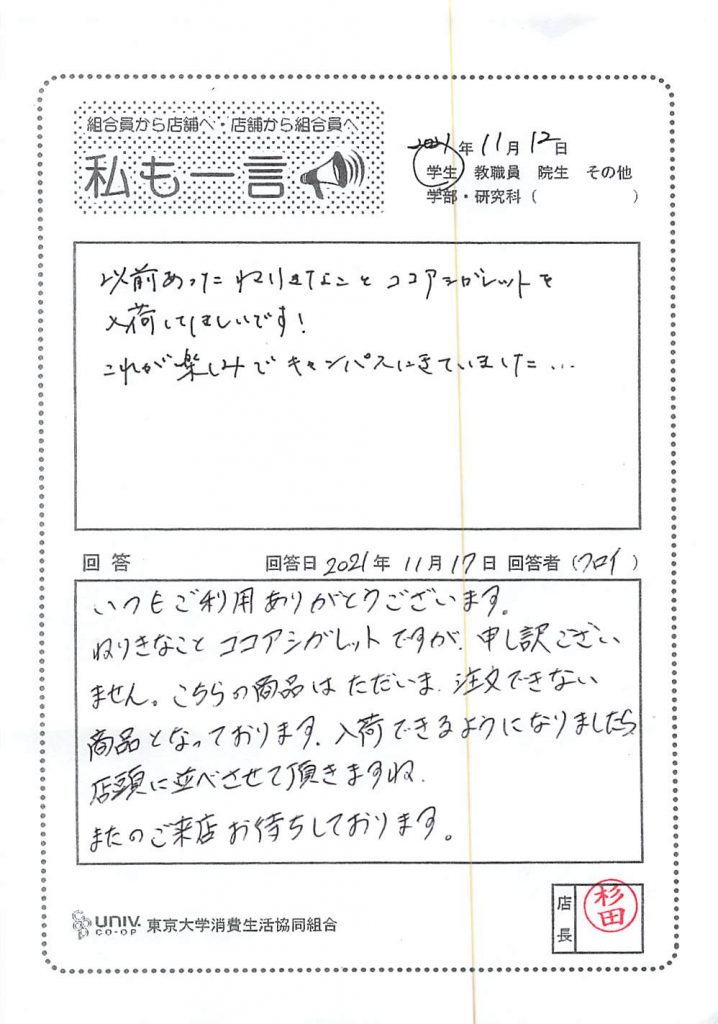 組合員から店舗へ・店舗から組合員へ
私も一言
2021年11月12日
学生 教職員 院生 その他
学部・研究科（ ）
以前あったねりきなことココアシガレットを
入荷してほしいです！
これが楽しみでキャンパスにきていました…
回答 回答日2021年11月17日 回答者（クロイ）
いつもご利用ありがとうございます。
ねりきなことココアシガレットですが、申し訳ござい
ません。こちらの商品はただいま、注文できない
商品となっております。入荷できるようになりましたら
店頭に並べさせて頂きますね。
またのご来店お待ちしております。
UNIV. CO-OP 東京大学消費生活協同組合
店長 杉田